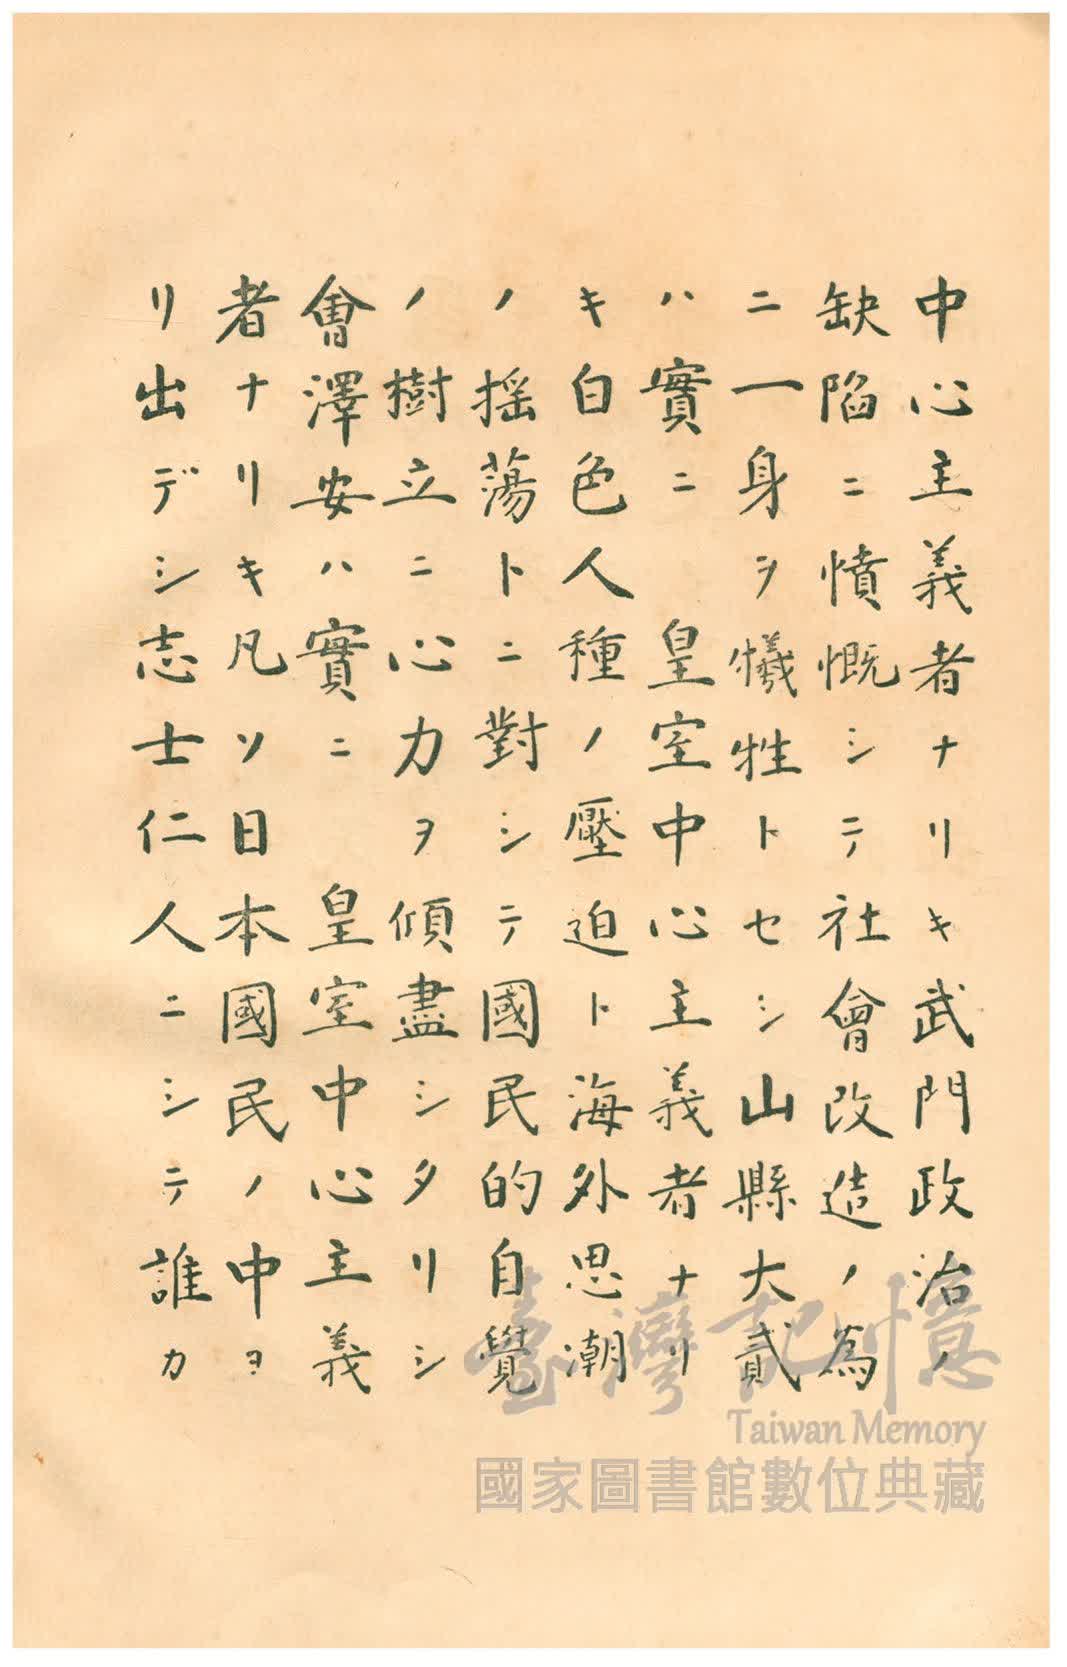 中心主義者ナリキ武門政治ノ
缺陷ニ憤慨シテ社會改造ノ爲
ニ一身ヲ犧牲トセシ山縣大貳
ハ實ニ　皇室中心主義者ナリ
キ白色人種ノ壓迫ト海外思潮
ノ搖蕩トニ對シテ國民的自覺
ノ樹立ニ心力ヲ傾盡シタリシ
會澤安ハ實ニ　皇室中心主義
者ナリキ凡ソ日本國民ノ中ヨ
リ出デシ志士仁人ニシテ誰カ
臺灣記憶
Taiwan Memory
國家圖書館數位典藏